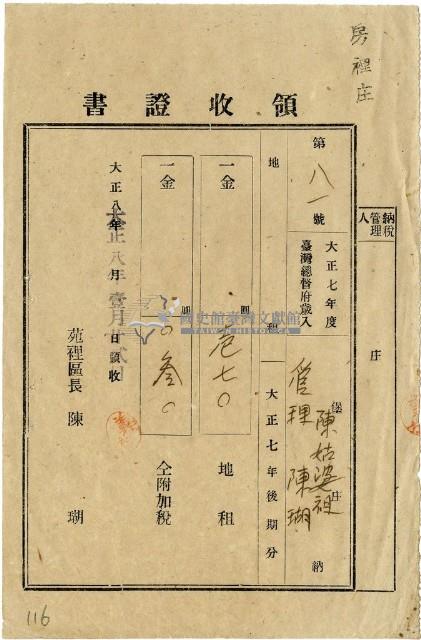 房裡庄
領收證書
納稅管理人
庄
第八一號
大正七年度
臺灣總督府歲入
堡
庄
陳姑婆祖
管理 陳瑚
納
地租
大正七年後期分
一金
圓
七〇
地租
一金
圓
〇叁〇
仝附加稅
大正八年 月 日領收
大正八年壹月
苑裡區長 陳 瑚
國史館臺灣文獻館
TAIWAN HISTORICA
116